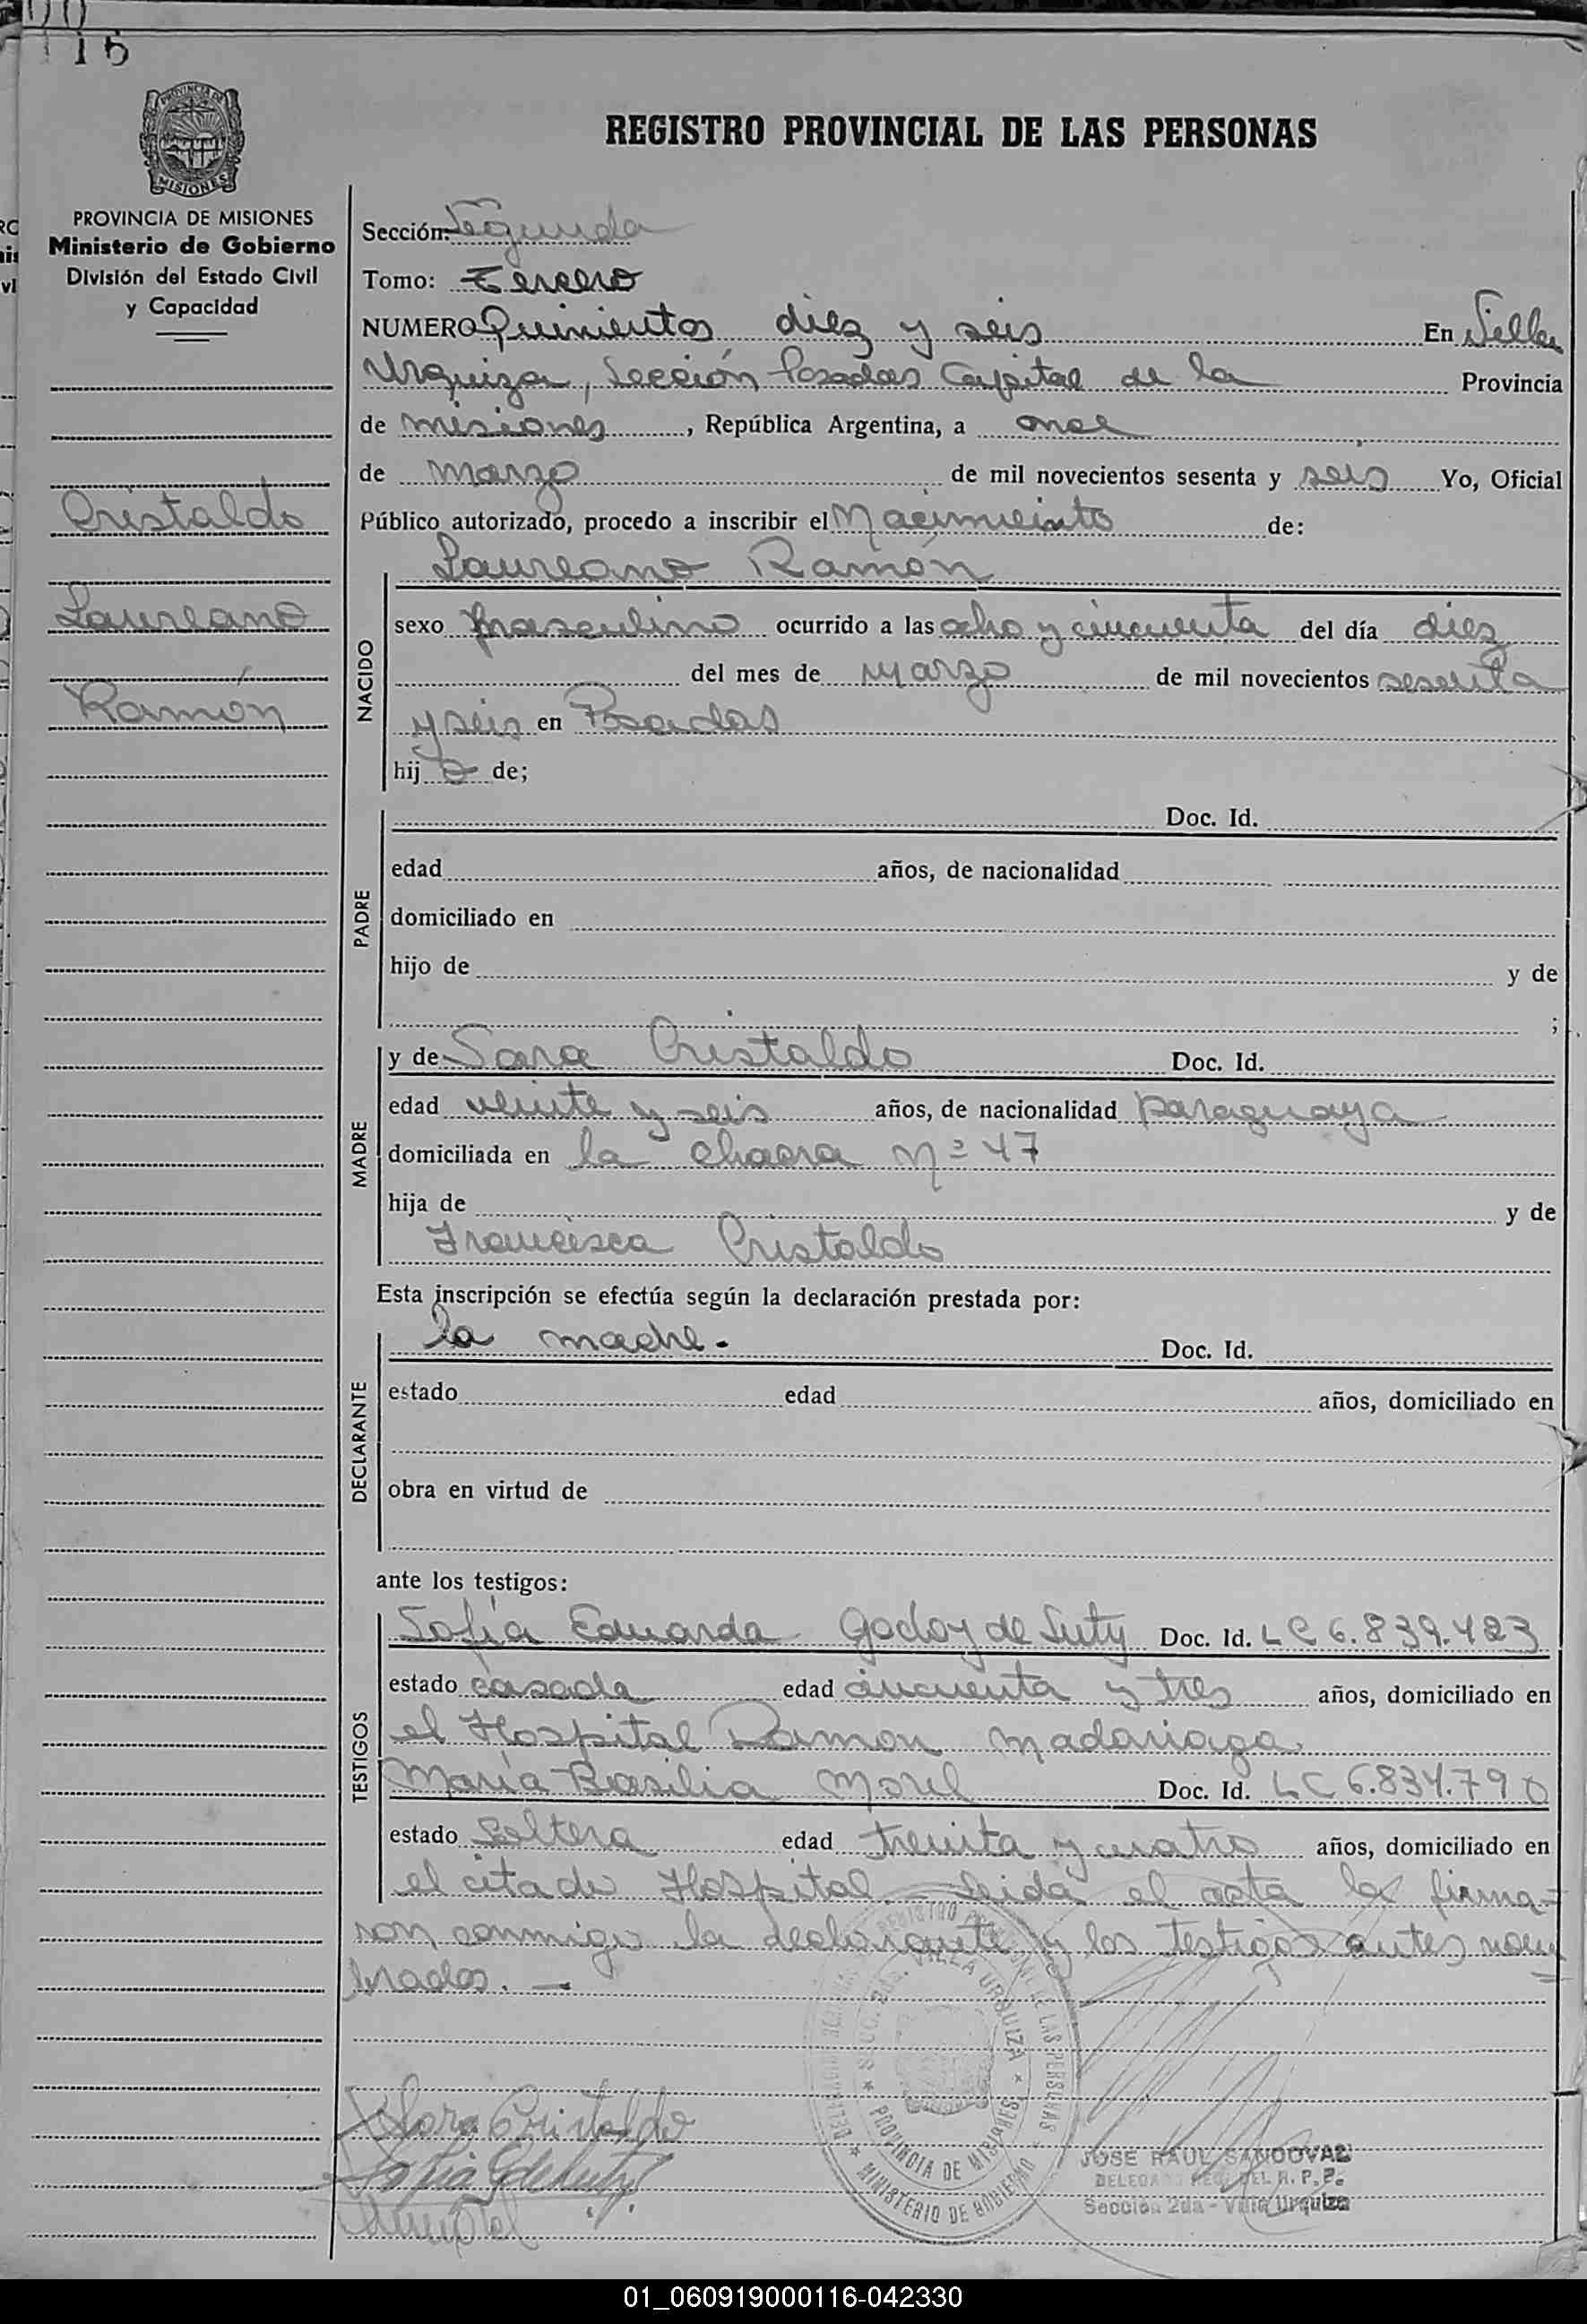 115
PROVINCIA DE MISIONES
MISIONES
PROVINCIA DE MISIONES
Ministerio de Gobierno
División del Estado Civil
y Capacidad
Cristaldo
Laureano
Ramón
REGISTRO PROVINCIAL DE LAS PERSONAS
Sección: Segunda
Tomo: Tercero
NUMERO Quinientos diez y seis En Villa
Urquiza, Sección Posadas Capital de la Provincia
de misiones, República Argentina, a once
de marzo de mil novecientos sesenta y seis Yo, Oficial
Público autorizado, procedo a inscribir el Nacimiento de:
Laureano Ramón
NACIDO
sexo masculino ocurrido a las ocho y cincuenta del día diez
del mes de marzo de mil novecientos sesenta
y seis en Posadas
hijo de;
PADRE
Doc. Id.
edad años, de nacionalidad
domiciliado en
hijo de y de
;
MADRE
y de Sara Cristaldo Doc. Id.
edad veinte y seis años, de nacionalidad paraguaya
domiciliada en la chacra Nº 47
hija de y de
Francisca Cristaldo
Esta inscripción se efectúa según la declaración prestada por:
DECLARANTE
la madre. Doc. Id.
estado edad años, domiciliado en
obra en virtud de
ante los testigos:
TESTIGOS
Sofía Eduarda Godoy de Suty Doc. Id. LC 6.839.423
estado casada edad cincuenta y tres años, domiciliado en
el Hospital Ramon Madariaga
María Basilia Morel Doc. Id. LC 6.834.790
estado soltera edad treinta y cuatro años, domiciliado en
el citado Hospital - Leida el acta la firma=
ron conmigo la declarante y los testigos antes nom
brados. —
Sara Cristaldo
SECC. 2da. VILLA URQUIZA
PROVINCIA DE MISIONES
MINISTERIO DE GOBIERNO
JOSE RAUL SANDOVAL
DEL R. P. P.
Sección 2da - Villa Urquiza
01_060919000116-042330